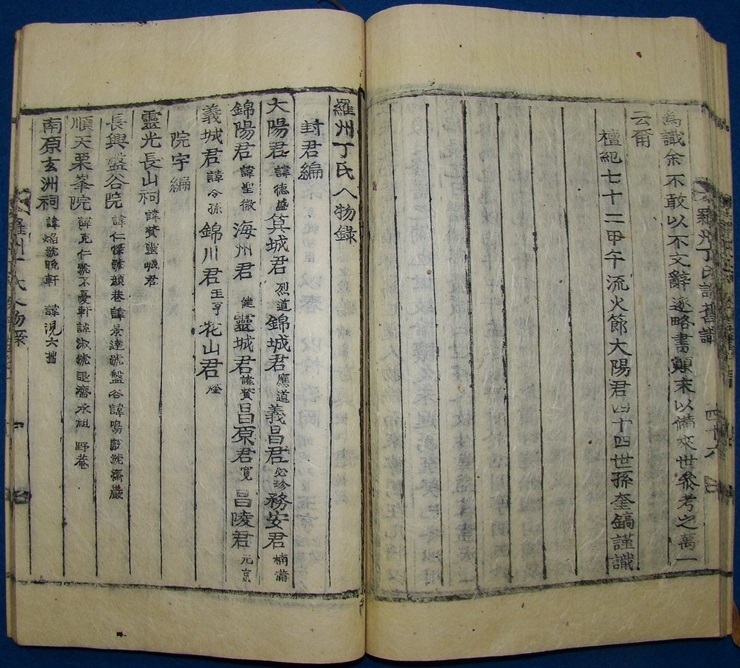 爲識余不敢以不文辭遂略書顚末以備來世參考之萬一
云爾
檀紀七十二甲午流火節大陽君四十四世孫奎鎬謹識
羅州丁氏人物錄
封君編
大陽君 諱德盛 箕城君 烈道 錦城君 應道 義昌君 必珍 務安君
錦陽君 諱聖徽 海州君 健 靈城君 諱贊 昌原君 寬 昌陵君 元亨
義城君 諱令孫 錦川君 玉亨 花山君
院宇編
靈光長山祠 諱贊 靈城君
長興盤谷院 諱仁 巷 諱景達 號盤谷 諱鳴 號
順天栗峯院 諱克仁 號不憂軒 諱淑 號 諱承祖 野菴
南原玄洲祠 諱焰 號晩軒
羅州丁氏人物錄